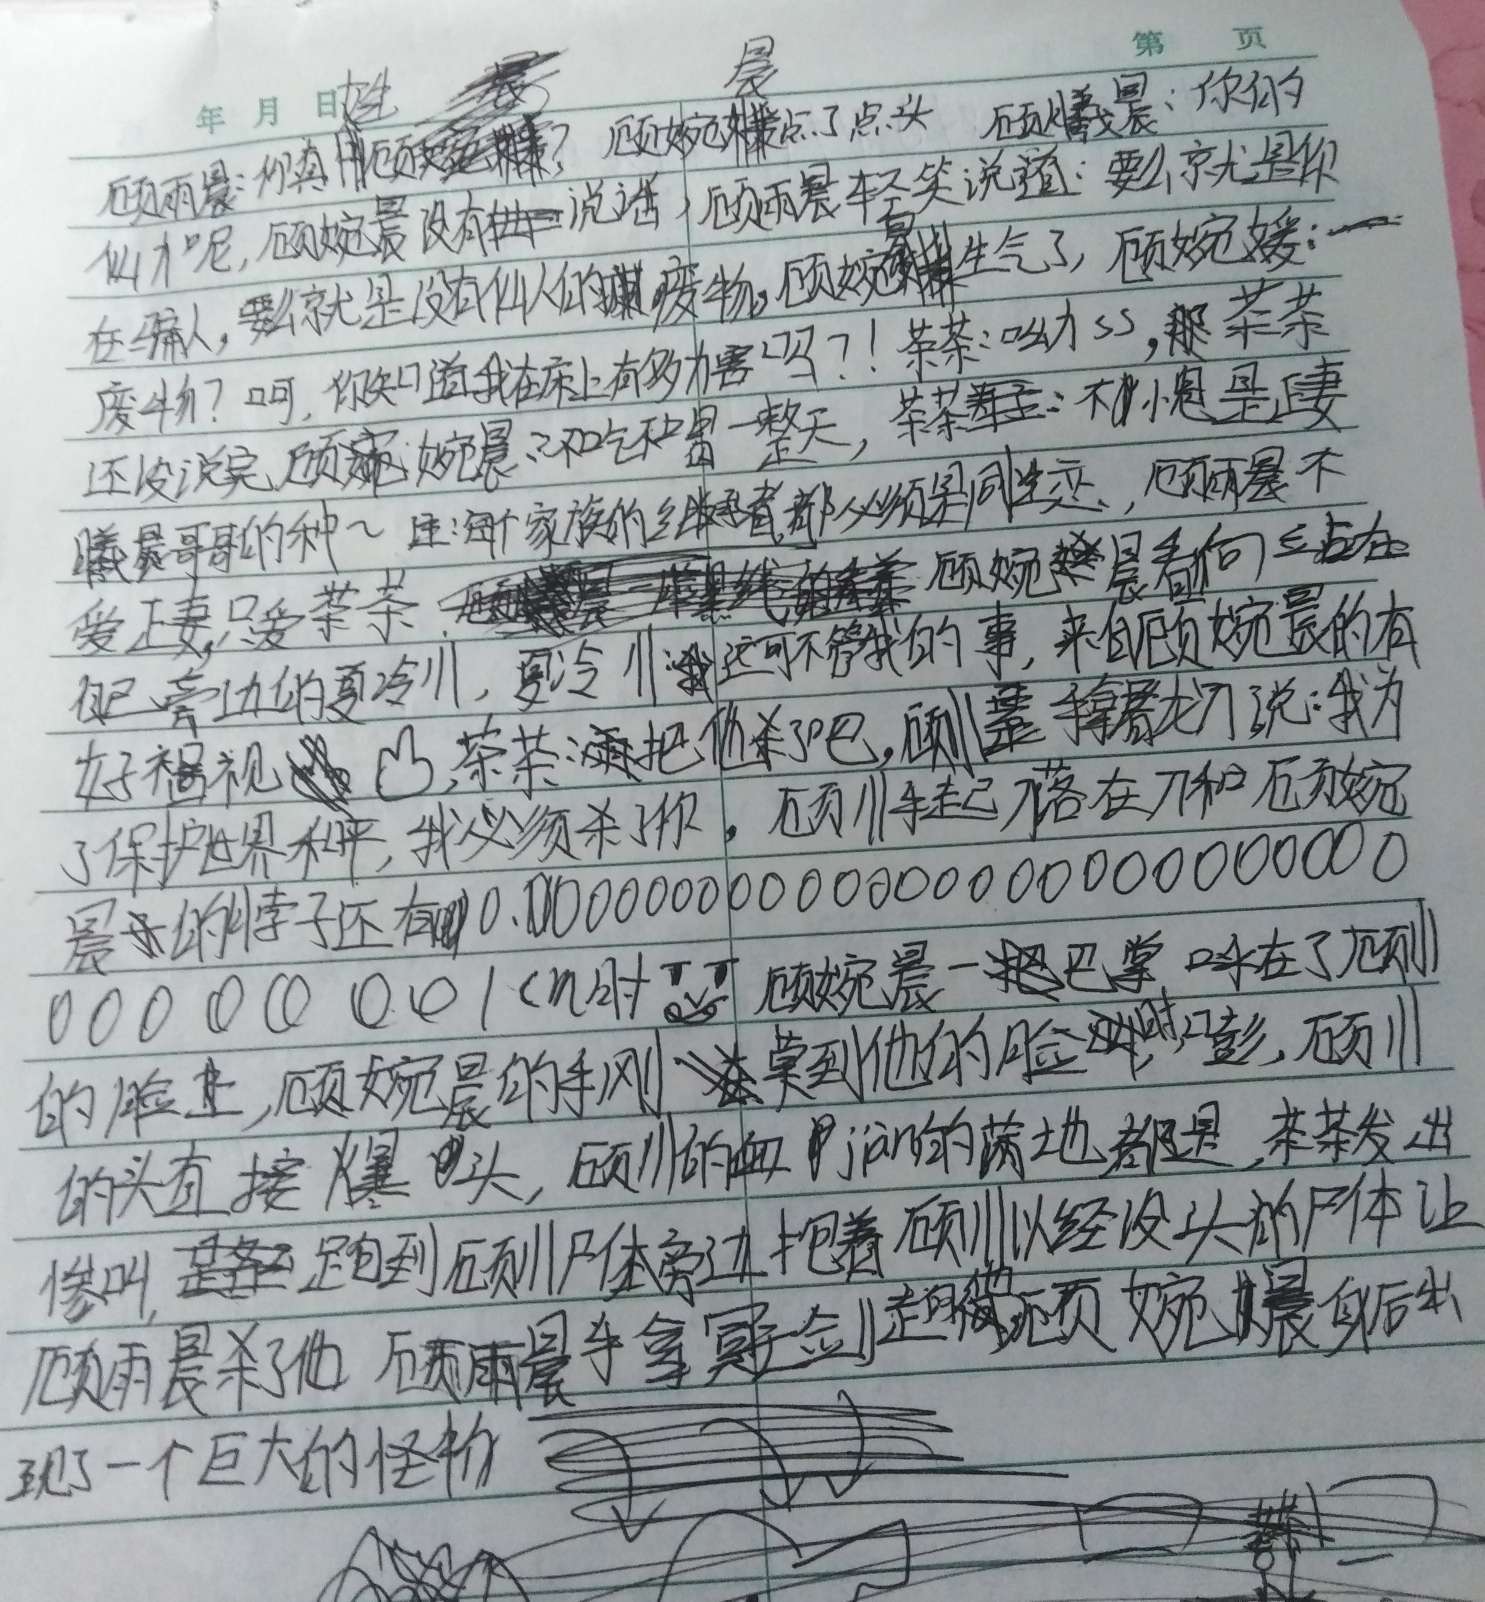 年 月 日 第 页
姓 晨
顾雨晨:你真 顾婉? 顾婉点了点头 顾曦晨:你的
仙力呢,顾婉晨没有说话,顾雨晨轻笑说道:要么就是你
在骗人,要么就是没有仙人的废物。顾婉晨生气了,顾婉媛:一
废物?呵,你知道我在床上有多力害吗?!茶茶:呦ss,那茶茶
还没说完 顾婉晨:不吃不冒一整天,茶茶:不小思是正妻
曦晨哥哥的种~ 注:每个家族的继承者都必须是同生恋,顾雨晨不
爱正妻,只爱茶茶 顾婉晨看向站在
自己旁边的夏冷川,夏冷川:这可不管我的事,来自顾婉晨的友
好福视,茶茶:把他杀了吧,顾川拿着龙刀说:我为
了保护世界和平,我必须杀了你,顾川手起刀落在刀和顾婉
晨的脖子还有0.000000000000000000000000
000000001cm时 顾婉晨一巴掌呼在了顾川
的脸上,顾婉晨的手刚莫到他的脸时,嘭,顾川
的头直接爆头,顾川的血jian的满地都是,茶茶发出
惨叫,跑到顾川尸体旁边抱着顾川以经没头的尸体让
顾雨晨杀了他 顾雨晨手拿冥剑走向顾婉晨身后出
现了一个巨大的怪物